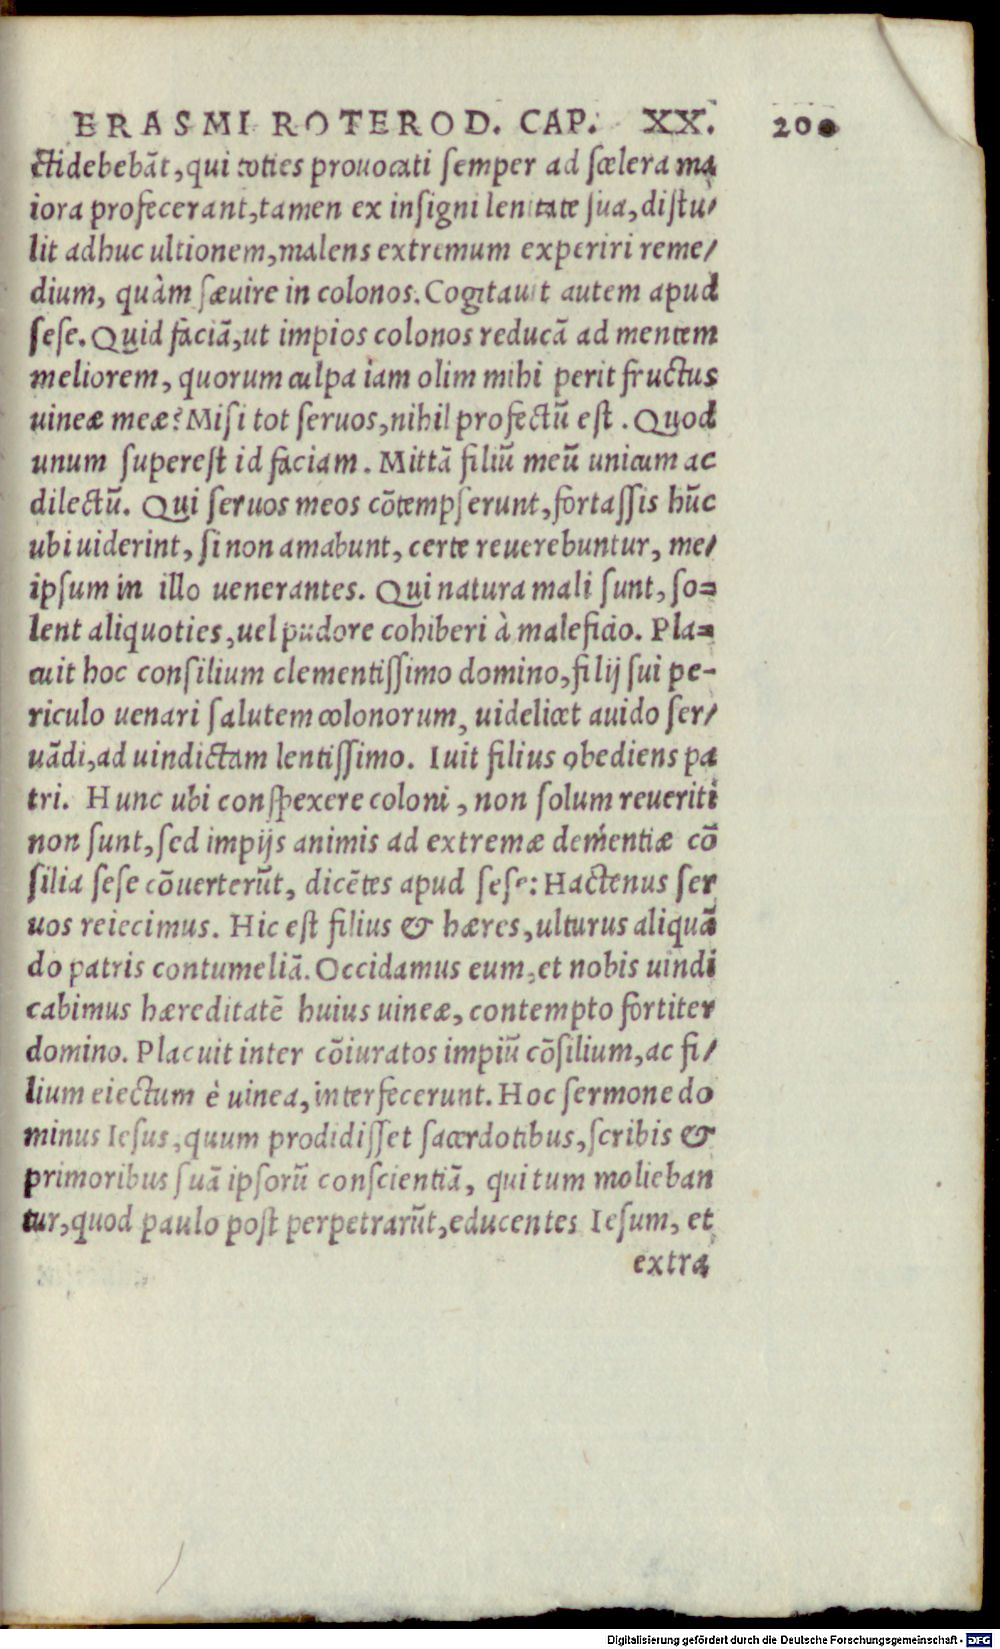 ERASMI ROTEROD. CAP. XX. 200
ctidebebāt, qui toties prouocati semper ad scelera ma
iora profecerant, tamen ex insigni lenitate sua, distu/
lit adhuc ultionem, malens extremum experiri reme/
dium, quàm sæuire in colonos. Cogitauit autem apud
sese. Quid faciā, ut impios colonos reducā ad mentem
meliorem, quorum culpa iam olim mihi perit fructus
uineæ meæ? Misi tot seruos, nihil profectū est. Quod
unum superest id faciam. Mittā filiū meū unicum ac
dilectū. Qui seruos meos cōtempserunt, fortassis hūc
ubi uiderint, si non amabunt, certe reuerebuntur, me/
ipsum in illo uenerantes. Qui natura mali sunt, so=
lent aliquoties, uel pudore cohiberi à maleficio. Pla=
cuit hoc consilium clementissimo domino, filij sui pe-
riculo uenari salutem colonorum, uidelicet auido ser/
uādi, ad uindictam lentissimo. Iuit filius obediens pa
tri. Hunc ubi conspexere coloni, non solum reueriti
non sunt, sed impijs animis ad extremæ dementiæ cō
silia sese cōuerterūt, dicētes apud sese: Hactenus ser
uos reiecimus. Hic est filius & hæres, ulturus aliquā
do patris contumeliā. Occidamus eum, et nobis uindi
cabimus hæreditatē huius uineæ, contempto fortiter
domino. Placuit inter cōiuratos impiū cōsilium, ac fi/
lium eiectum è uinea, interfecerunt. Hoc sermone do
minus Iesus, quum prodidisset sacerdotibus, scribis &
primoribus suā ipsorū conscientiā, qui tum molieban
tur, quod paulo post perpetrarūt, educentes Iesum, et
extra
Digitalisierung gefördert durch die Deutsche Forschungsgemeinschaft - DFG